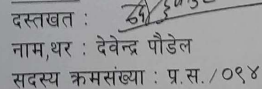 दस्तखत :
नाम,थर : देवेन्द्र पौडेल
सदस्य क्रमसंख्या : प्र.स./०९४